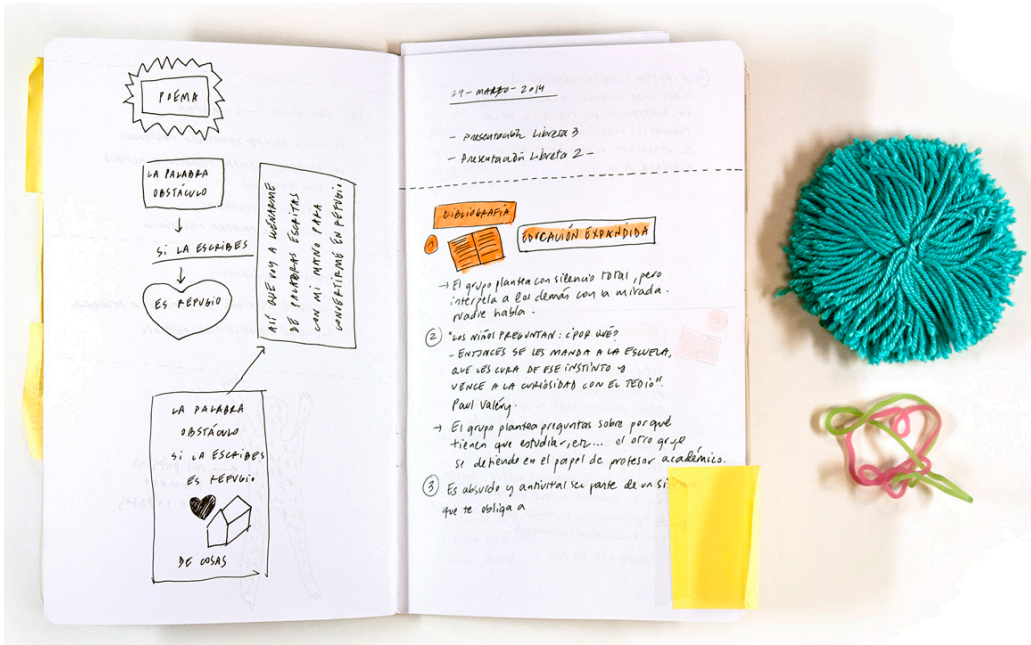 POEMA
LA PALABRA
OBSTÁCULO
SI LA ESCRIBES
ES REFUGIO
ASÍ QUE VOY A LLENARME
DE PALABRAS ESCRITAS
CON MI MANO PARA
CONVERTIRME EN REFUGIO
LA PALABRA
OBSTÁCULO
SI LA ESCRIBES
ES REFUGIO
DE COSAS
29-MARZO-2014
- Presentación Libreta 3
- Presentación Libreta 2 -
BIBLIOGRAFÍA
1
EDUCACIÓN EXPANDIDA
→ El grupo plantea con silencio total, pero
interpela a los demás con la mirada.
Nadie habla.
2 "LOS NIÑOS PREGUNTAN: ¿POR QUÉ?
- ENTONCES SE LES MANDA A LA ESCUELA,
QUE LES CURA DE ESE INSTINTO Y
VENCE A LA CURIOSIDAD CON EL TEDIO".
Paul Valéry.
→ El grupo plantea preguntas sobre por qué
tienen que estudiar, etc... el otro grupo
se defiende en el papel de profesor académico.
3 Es absurdo y antivital ser parte de un
que te obliga a